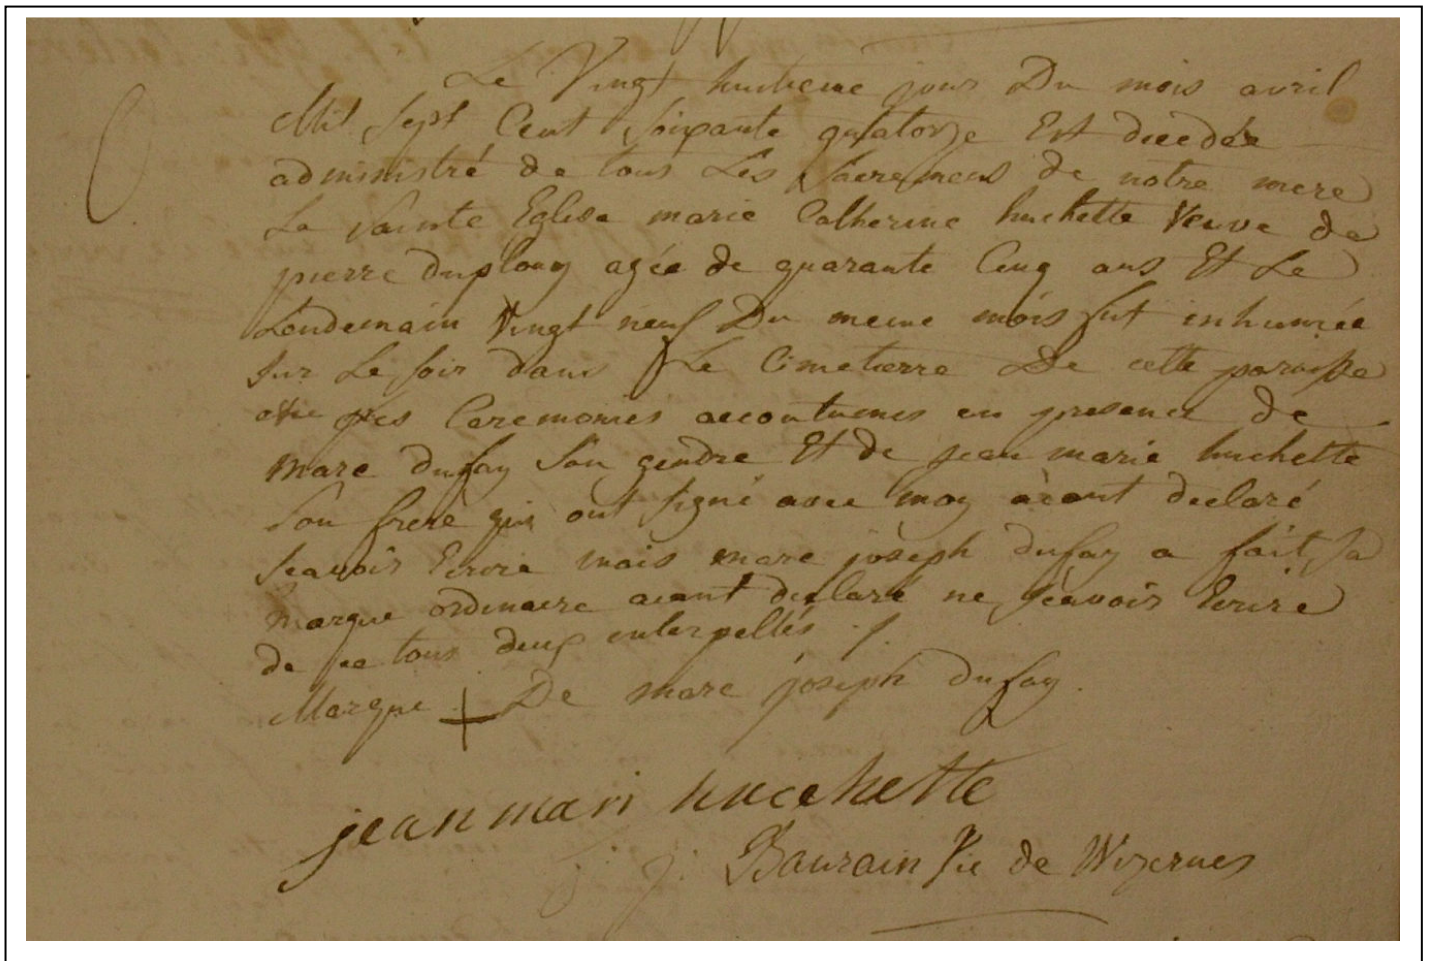 Le Vingt huitieme jour Du mois avril
Mil sept Cent soixante quatorze Est decedée
administré de tous Les sacremens de notre mere
La sainte Eglise marie Catherine huchette Veuve de
pierre duplouy agée de quarante Cinq ans Et Le
Lendemain Vingt neuf Du meme mois fut inhumée
sur Le soir dans Le Cimetierre De cette paroisse
avec les Ceremonies accoutumes en presence de
marc dufay son gendre Et de jean marie huchette
son frere qui ont signé avec moy aiant declaré
scavoir Ecrire mais marc joseph dufay a fait sa
marque ordinaire aiant declaré ne scavoir Ecrire
de ce tous deux interpellés
Marque + De marc joseph dufay
jean mari hucchette
Baurain Vic de Wizernes